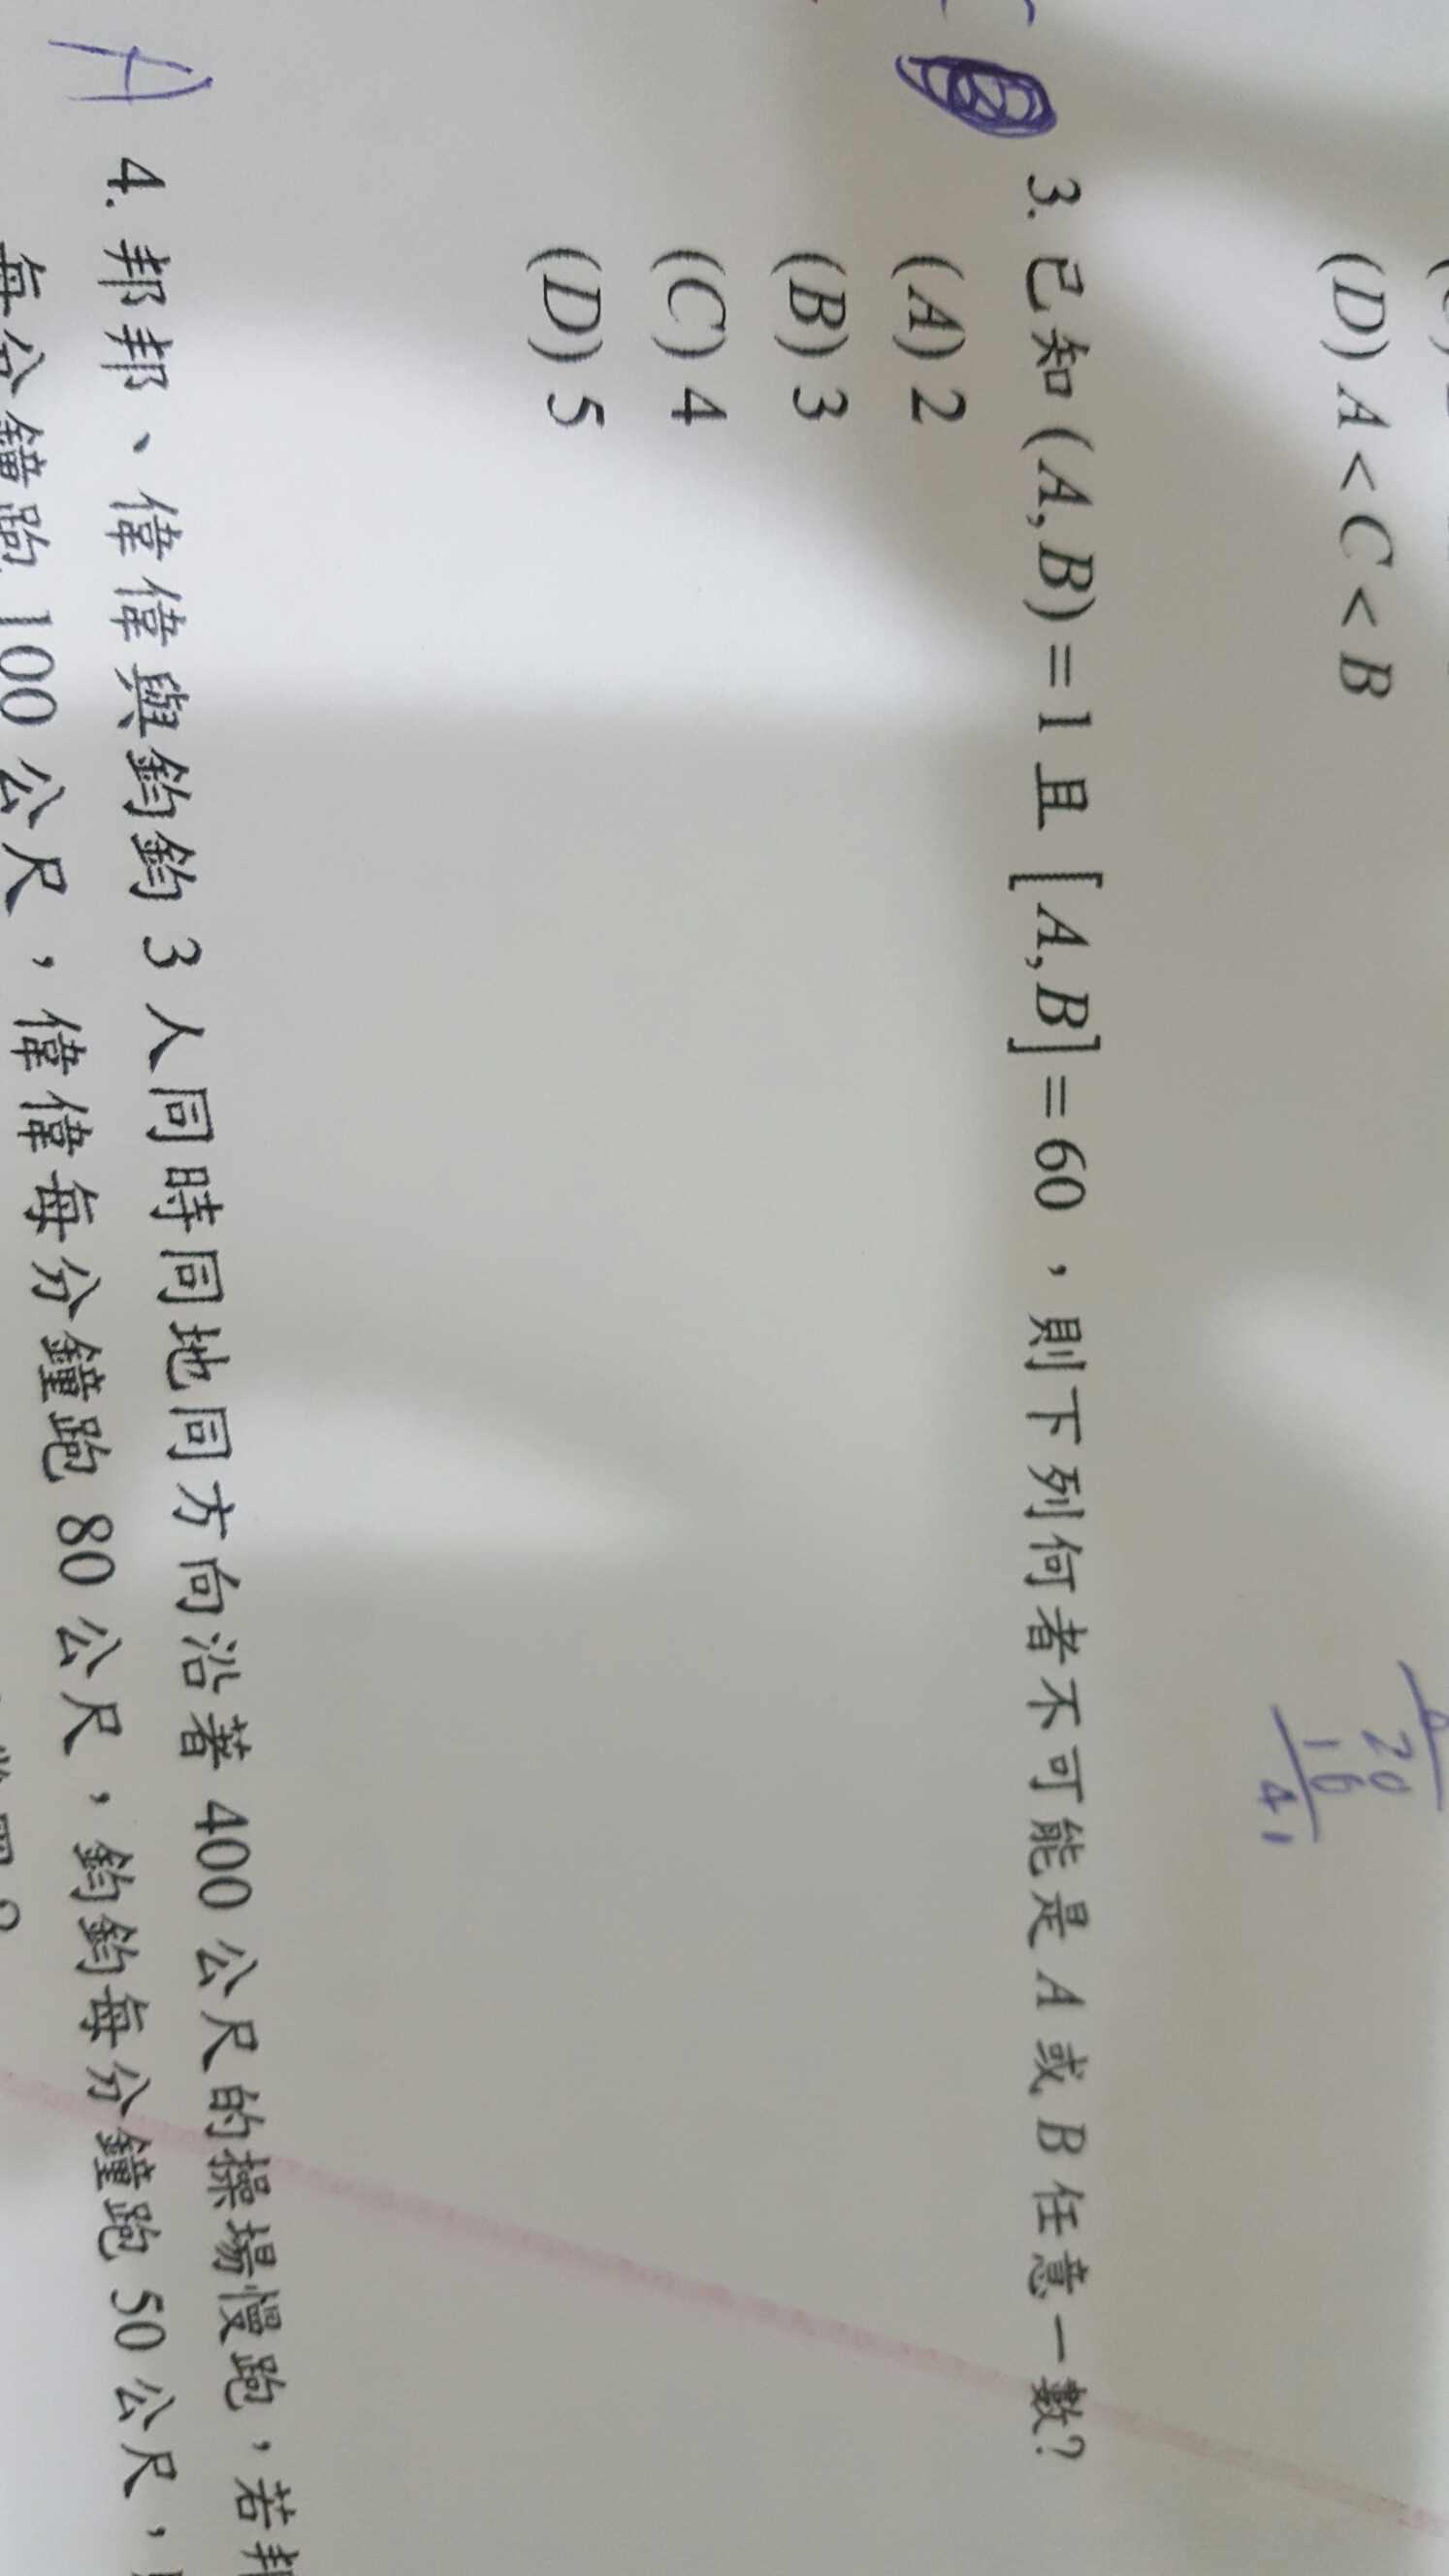 (D) A < C < B
20
16
4
3. 已知 (A, B) = 1 且 [A, B] = 60 ，則下列何者不可能是 A 或 B 任意一數？
(A) 2
(B) 3
(C) 4
(D) 5
A 4. 邦邦、偉偉與鈞鈞 3 人同時同地同方向沿著 400 公尺的操場慢跑，若邦
每分鐘跑 100 公尺，偉偉每分鐘跑 80 公尺，鈞鈞每分鐘跑 50 公尺，